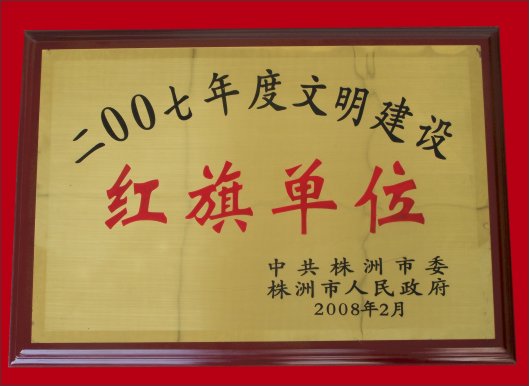 二00七年度文明建设
红旗单位
中共株洲市委
株洲市人民政府
2008年2月